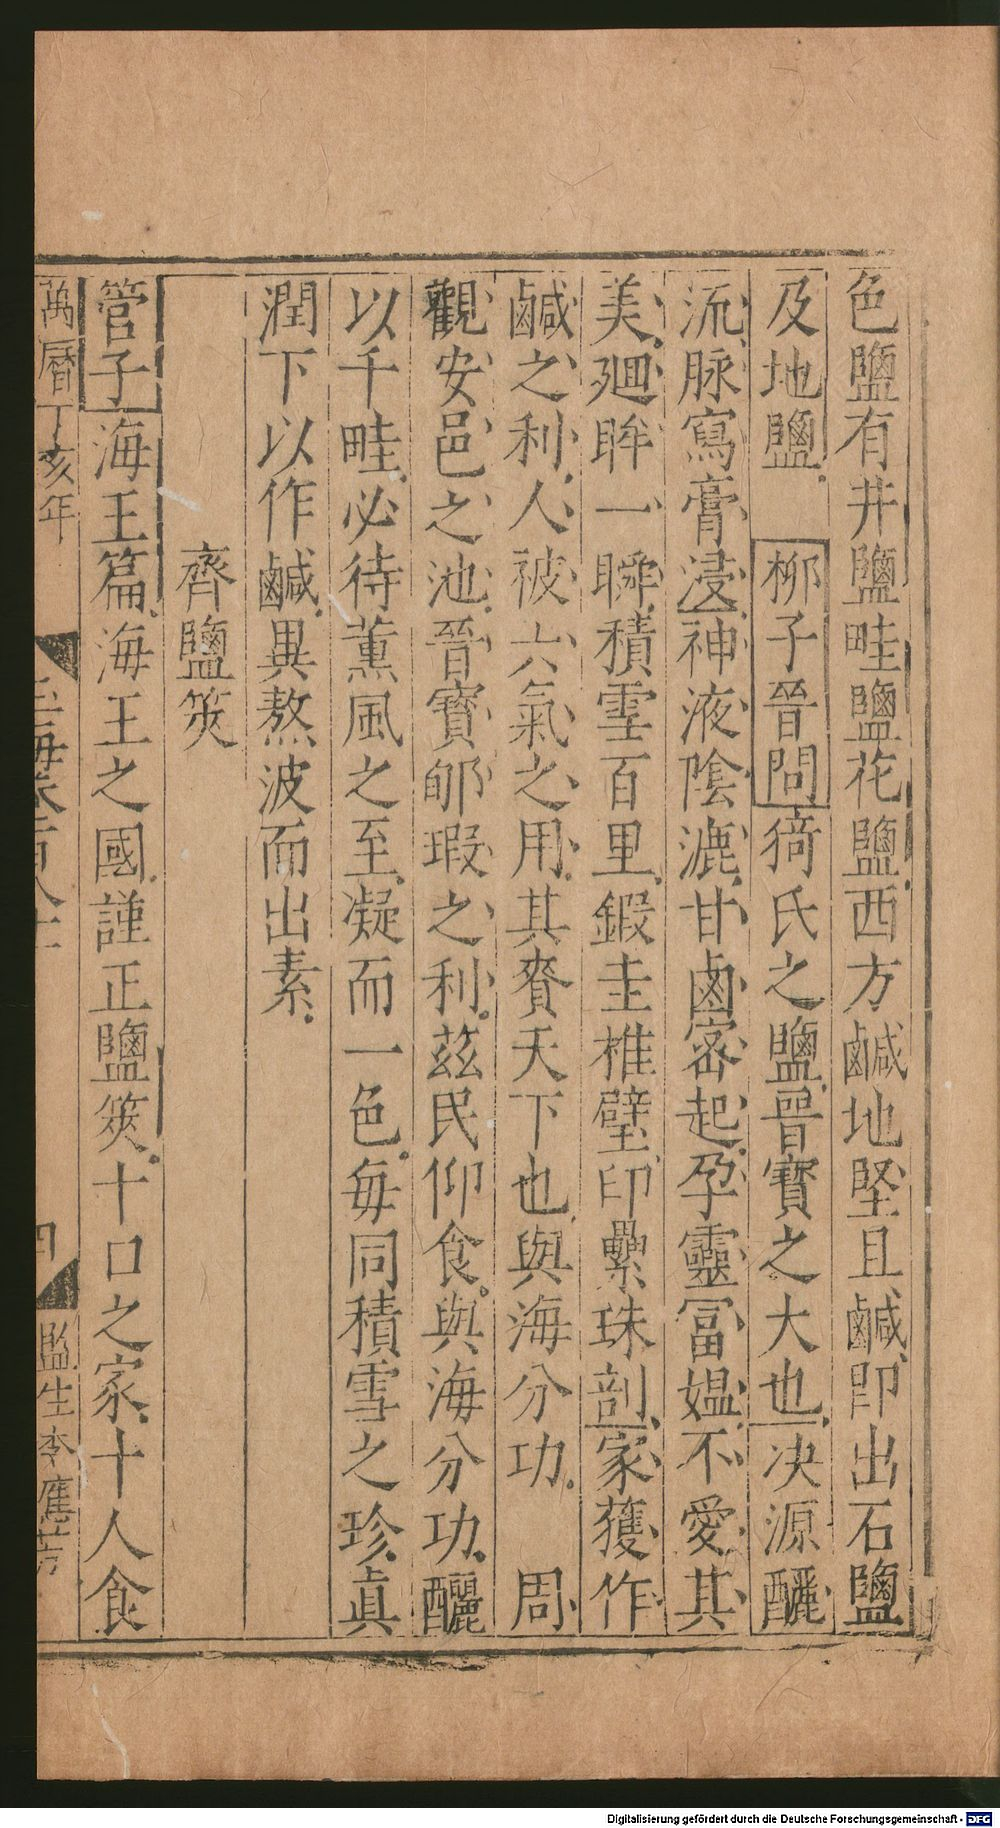 色鹽有井鹽畦鹽花鹽西方鹹地堅且鹹卽出石鹽
及地鹽 柳子晉問猗氏之鹽晉寶之大也决源釃
流脉寫膏浸神液陰漉甘鹵宻起孕靈冨媪不愛其
美廻眸一瞬積雪百里鍛圭椎璧印纍珠剖家獲作
鹹之利人被六氣之用其賚天下也與海分功 周
觀安邑之池晉寳郇瑕之利茲民仰食與海分功釃
以千畦必待薰風之至凝而一色毎同積雪之珍眞
潤下以作鹹異熬波而出素
齊鹽筴
管子海王篇海王之國謹正鹽筴十口之家十人食
萬曆丁亥年
玉海卷一百八十
四
監生李應芳
Digitalisierung gefördert durch die Deutsche Forschungsgemeinschaft - DFG